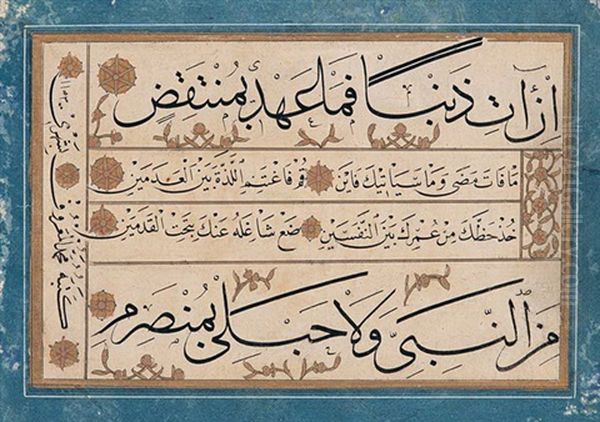 ان آت ذنبا فما عهدي بمنتقض
ما فات مضى وما سياتيك فاين قم فاغتنم اللذة بين العدمين
خذ حظك من عمرك بين النفسين ضع شاغله عنك بتحت القدمين
من النبي ولا حبلي بمنصرم
كتبه محمد المعروف